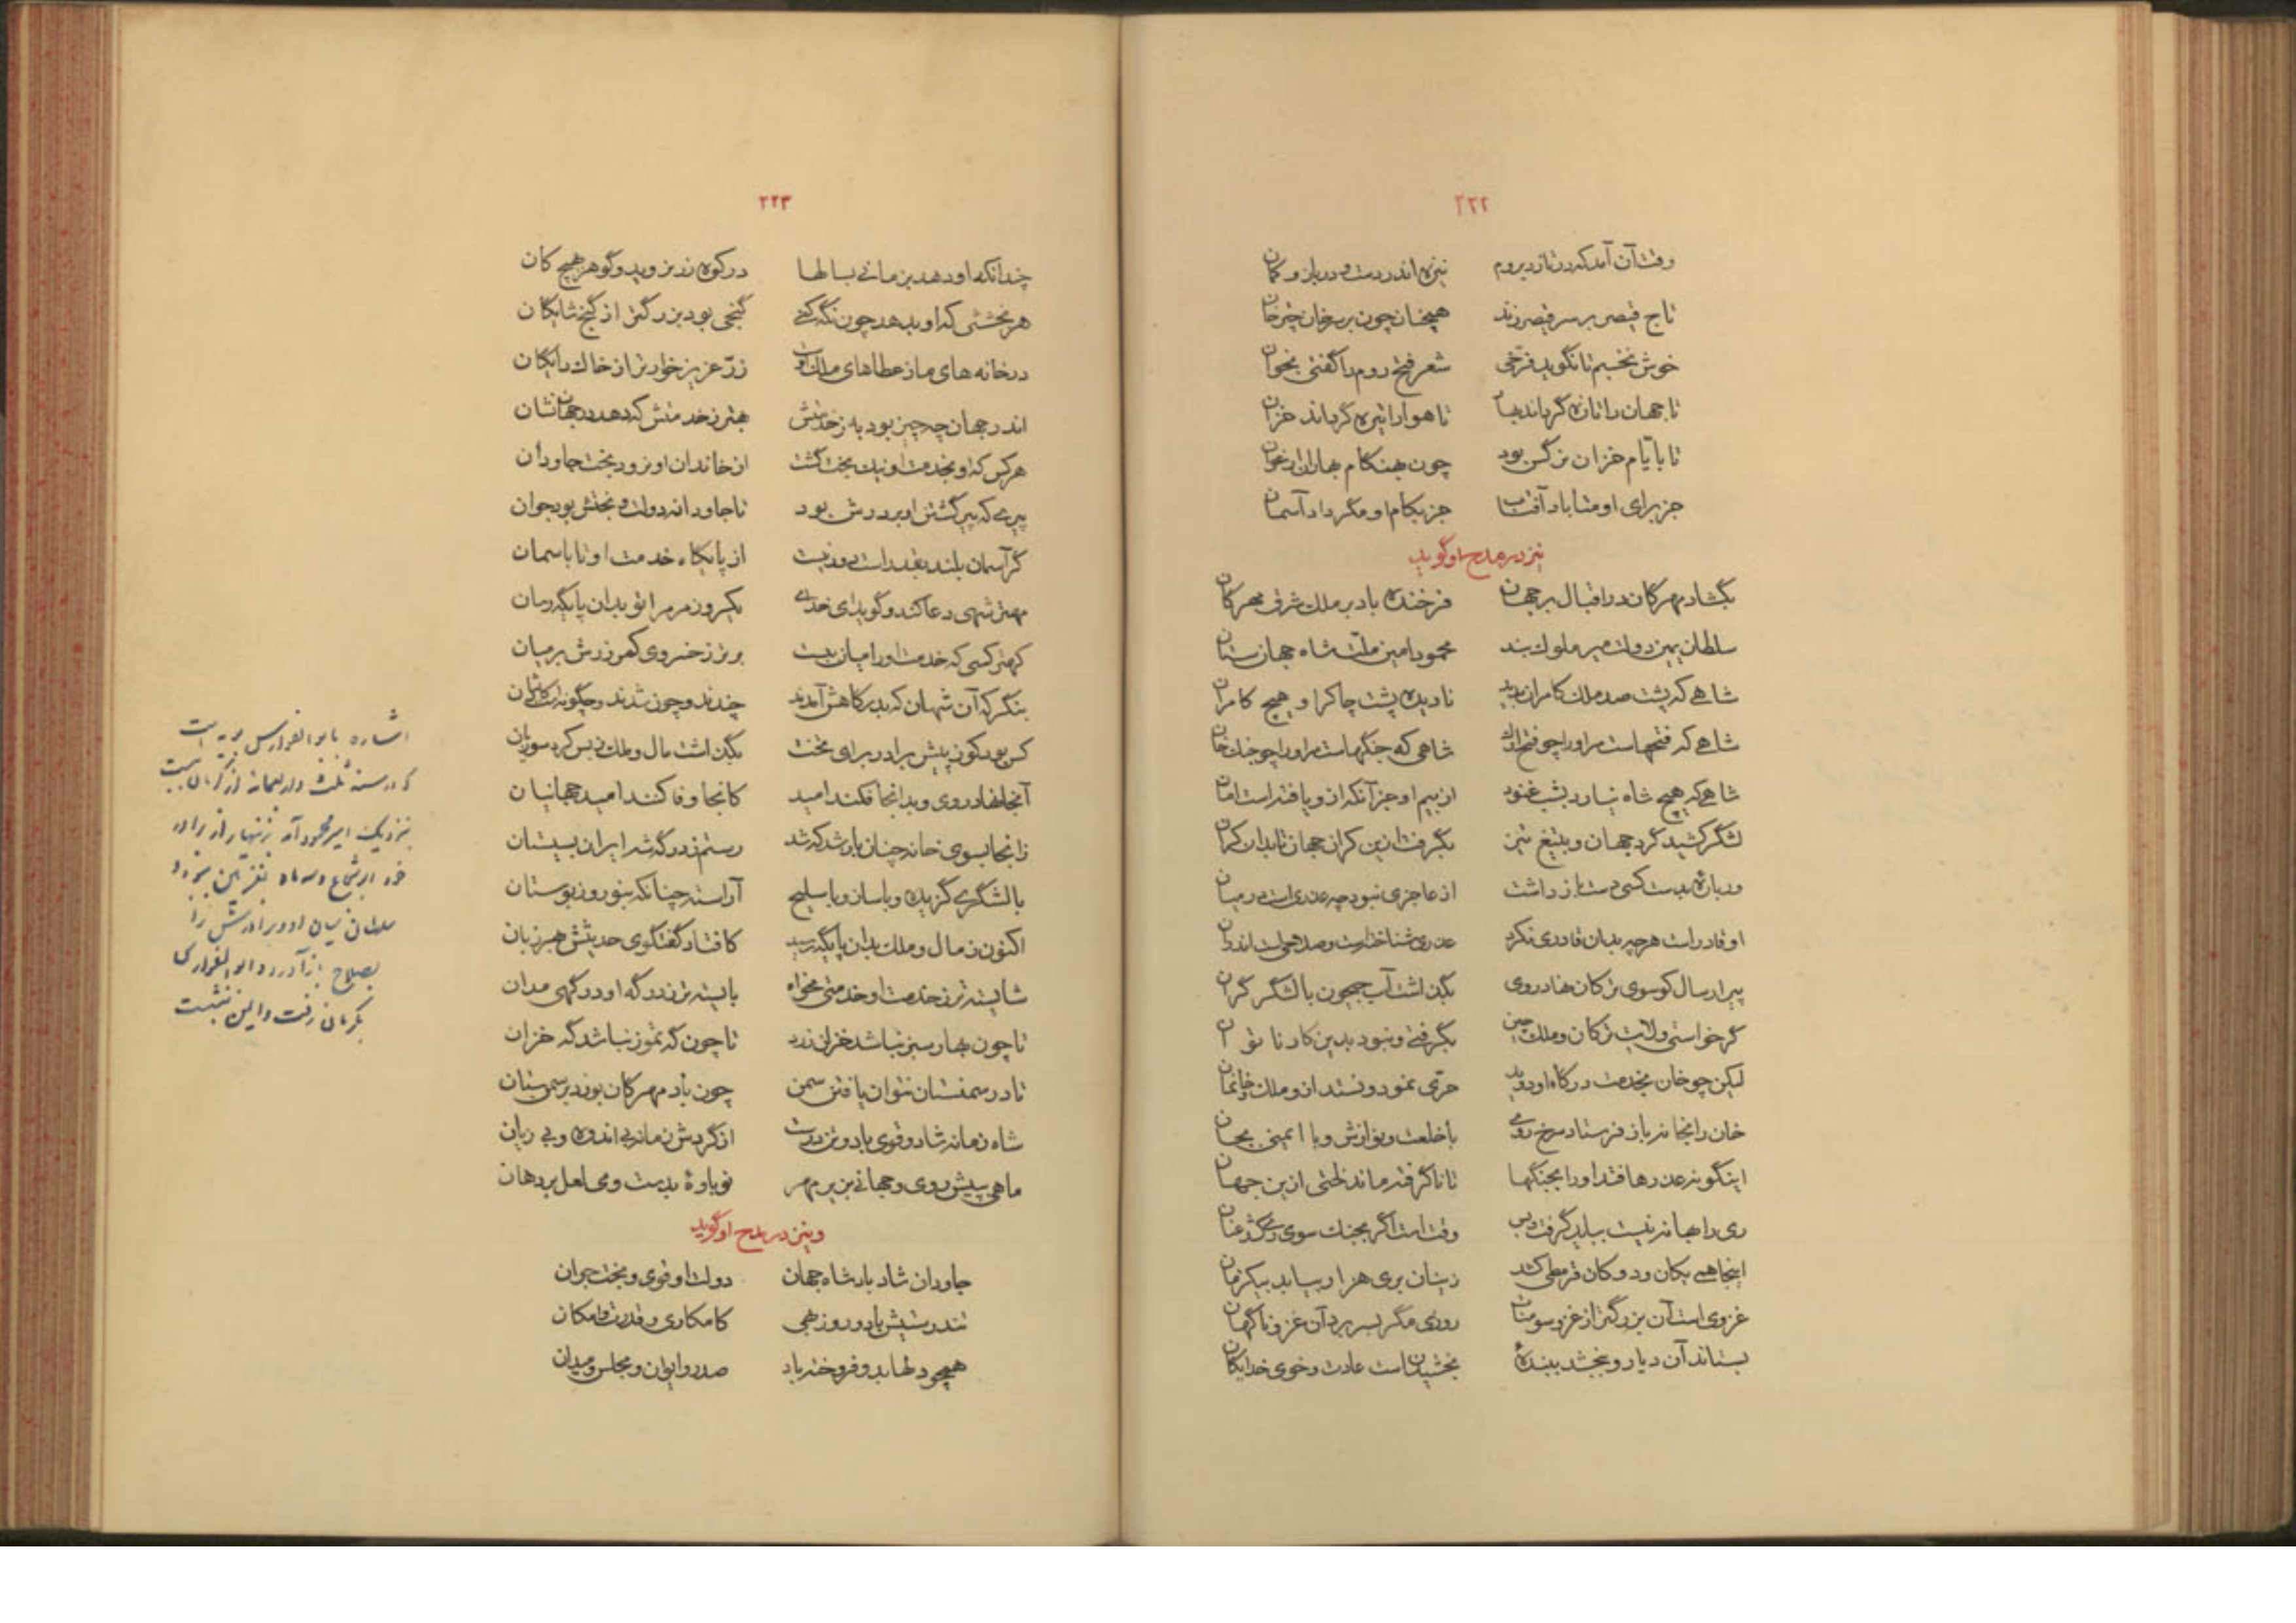 ۲۲۲
وقت آن آمد که در تازد بروم نیزه اندر دست و در بازو کمان
تاج قیصر بر سر قیصر زند همچنان چون بر سر خان چتر خان
خوش نخسبم تا نگوید فرخی شعر فتح روم را گفتی بخوان
تا جهان را تازه گرداند بهار تا هوا را تیره گرداند خزان
تا بایّام خزان نرگس بود چون بهنگام بهاران ارغوان
جز برای او متاباد آفتاب جز بکام او مگرداد آسمان
نیز در مدح او گوید
بگشاد مهرکان در اقبال بر جهان فرخنده باد بر ملک شرق مهرکان
سلطان یمین دولت میر ملوک بند محمود امین ملّت شاه جهان ستان
شاهی که پشت صد ملک کامران بدید نادیده پشت چاکر او هیچ کامران
شاهی که فتحهاست مر او را چو فتح ارک شاهی که جنگهاست مر او را چو جنگ خان
شاهی که هیچ شاه نیارد بشب غنود از بیم او جز آنکه ازو یافته است امان
لشگر کشید گرد جهان و بتیغ تیز بگرفت ازین کران جهان تا بدان کران
ور باره بدست کسی دست باز داشت از عاجزی نبود چه عذری است در میان
او قادر است هر چه بدان قادری نکرد عذری شناخته است و صد همت اندر آن
پیرار سال کو سوی ترکان نهاد روی بگذاشت آب جیحون با لشگر گران
گر خواستی ولایت ترکان و ملک چین بگرفتی و نبود بدین کار ناتوان
لیکن چو خان بخدمت درگاه او دوید حرّی نمود و نستد ازو ملک و خانمان
خان را بخانه باز فرستاد سرخ روی با خلعت و نوازش و با ایمنی بجان
اینگونه عذرها فتد او را بجنگها تا ناگرفته ماند لختی ازین جهان
ری را بهانه نیست بباید گرفت پس وقت است اگر بجنگ سوی ری کشد عنان
اینجا همی یکان و دوکان قرمطی کشد زینان بری هزار بیابد بیک زمان
غزوی است آن بزرگتر از غزو سومنات روزی مگر بسر برد آن غزو ناگهان
بستاند آن دیار و ببخشد ببنده بخشیدن است عادت و خوی خدایگان
۲۲۳
چندانکه او دهد بزمانی بسالها در کوه زر نروید و گوهر هیچ کان
هر بخششی که او بدهد چون نگه کنی گنجی بود بزرگتر از گنج شایگان
در خانه های ما ز عطاهای ملک او زرّ عزیز خوارتر از خاک رایگان
اندر جهان چه چیز بود به ز خدمتش بهتر ز خدمتش که دهد در جهان نشان
هر کس که او بخدمت او نیک بخت گشت از خاندان او نرود بخت جاودان
پیری که پیر گشتن او بر درش بود تا جاودانه دولت و بختش بود جوان
گر آسمان بلند بقدر است دور نیست از پایگاه خدمت او تا باسمان
مهتر شهی دعا کند و گوید ای خدای یکروز مر مرا تو بدان پایگه رسان
کهتر کسی که خدمت او را میان ببست برتر ز خسروی کمر زرش بر میان
بنگر که آن شهان که بدرگاهش آمدند چندند و چون شدند و چگونه است کارشان
کس بود کو ز پیش برادر برای تخت بگذاشت مال و ملک ز بس کرد سوزیان
آنجا نهاد روی و بدانجا فکند امید کانجا وفا کنند امید جهانیان
زانجا بسوی خانه چنان باز شد که شد رستم ز درگه شه ایران بسیستان
با لشگری گزیده و با ساز و با سلیح آراسته چنانکه بنوروز بوستان
اکنون ز مال و ملک بدان پایگه رسید کافتاد گفتگوی حدیثش بهر زبان
شایسته تر ز خدمت او خدمتی مخواه بایسته تر ز درگه او درگهی مدان
تا چون بهار سبز نباشد خزان زرد تا چون که تموز نباشد گه خزان
تا در سمنستان نتوان یافتن سمن چون باد مهرکان بوزد بر سمنستان
شاه زمانه شاد و قوی باد و تن درست از گردش زمانه بی اندوه و بی زیان
ماهی بپیش روی و جهانی بزیر مهر نوباوه بدست و می لعل بر دهان
و نیز در مدح او گوید
جاودان شاد باد شاه جهان دولت او قوی و بخت جوان
تندرستیش باد و روزبهی کامکاری و قدرت و امکان
همچو دلها بدو فروخته باد صدر و ایوان و مجلس و میدان
اشاره بابو الفوارس بویه است
که در سنه ثلث و اربعمائه از کرمان ببست
نزدیک امیر محمود آمد بزینهار از برادر
خود ابو شجاع و سه ماه بغزنین ببود و
سلطان میان او و برادرش را
بصلاح باز آورد و ابو الفوارس
بکرمان رفت و ایمن نشست